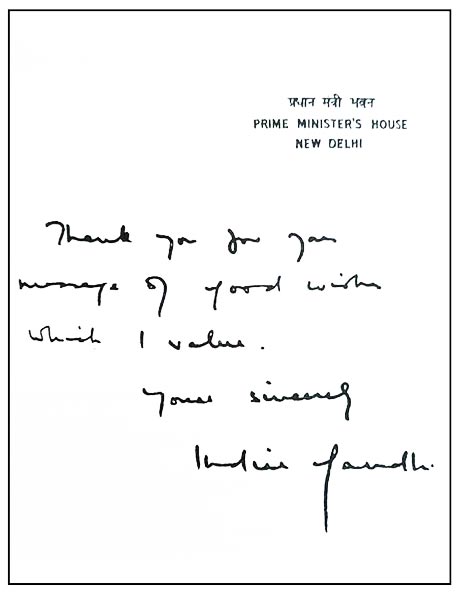 प्रधान मंत्री भवन
PRIME MINISTER'S HOUSE
NEW DELHI
Thank you for your
message of good wishes
which I value.
Yours sincerely
Indira Gandhi.